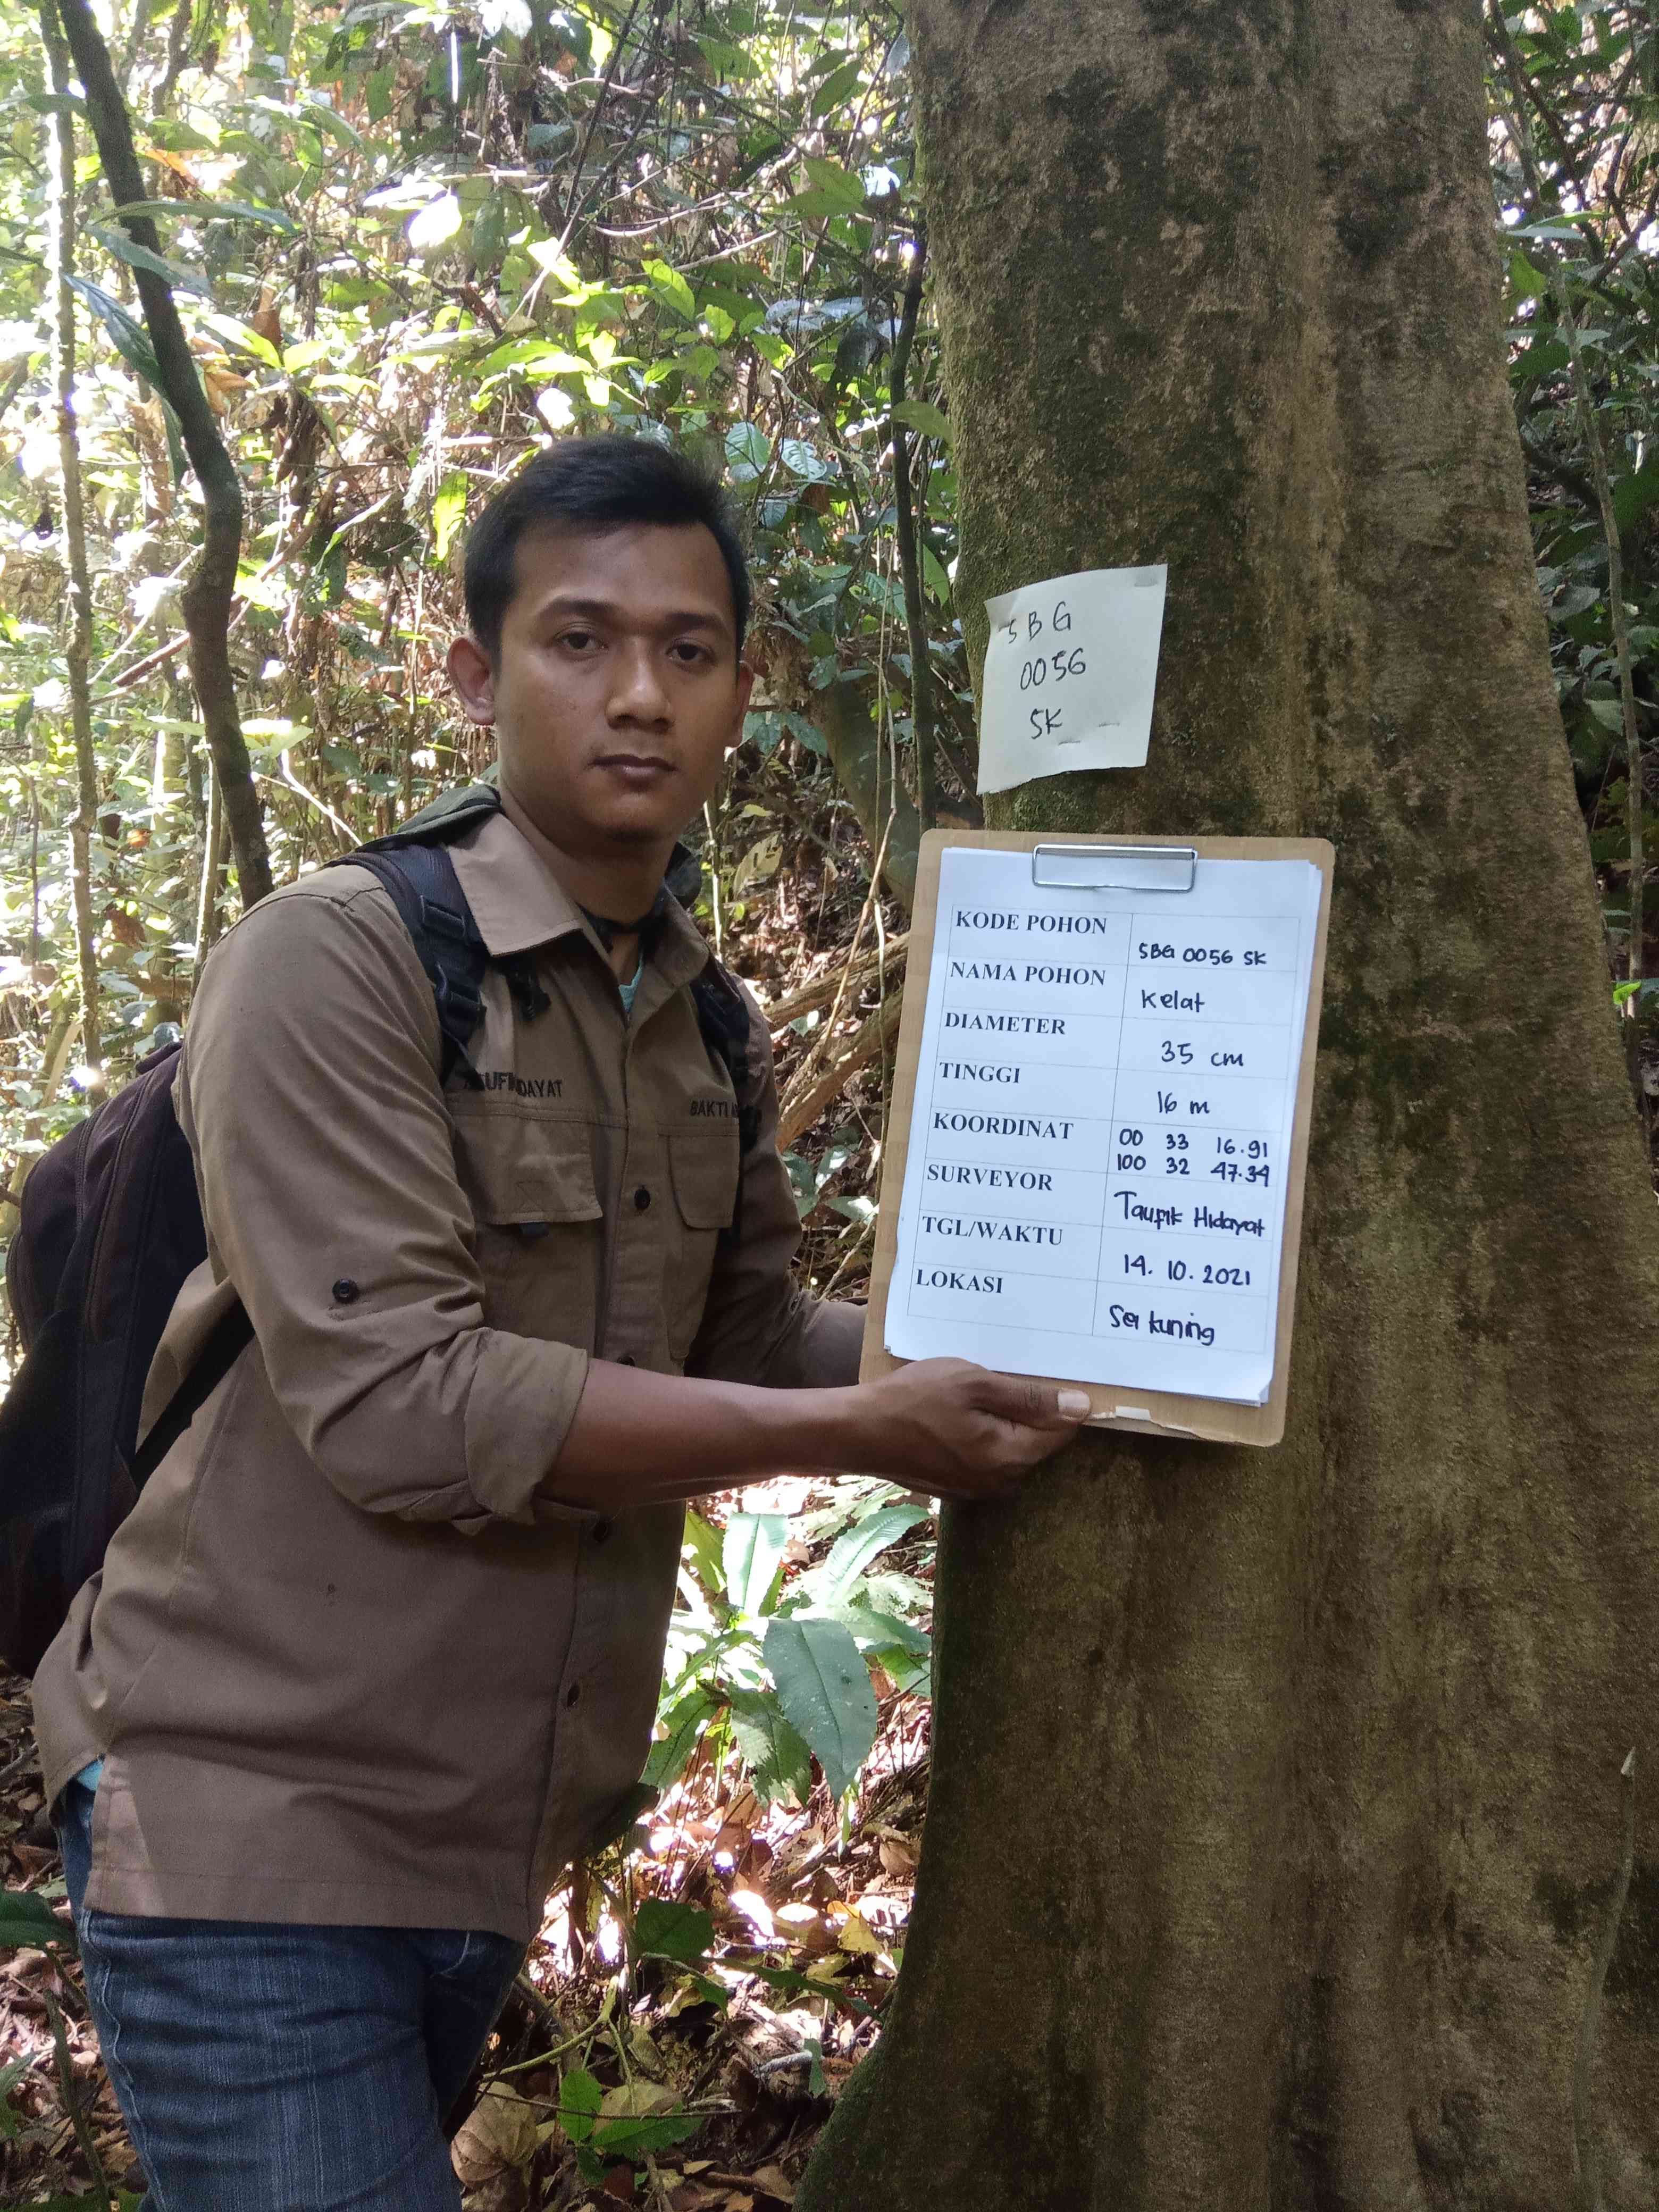 SBG
0056
SK
KODE POHON SBG 0056 SK
NAMA POHON Kelat
DIAMETER 35 cm
TINGGI 16 m
KOORDINAT 00 33 16.91
100 32 47.34
SURVEYOR Taufik Hidayat
TGL/WAKTU 14.10.2021
LOKASI Sei kuning
BAKTI